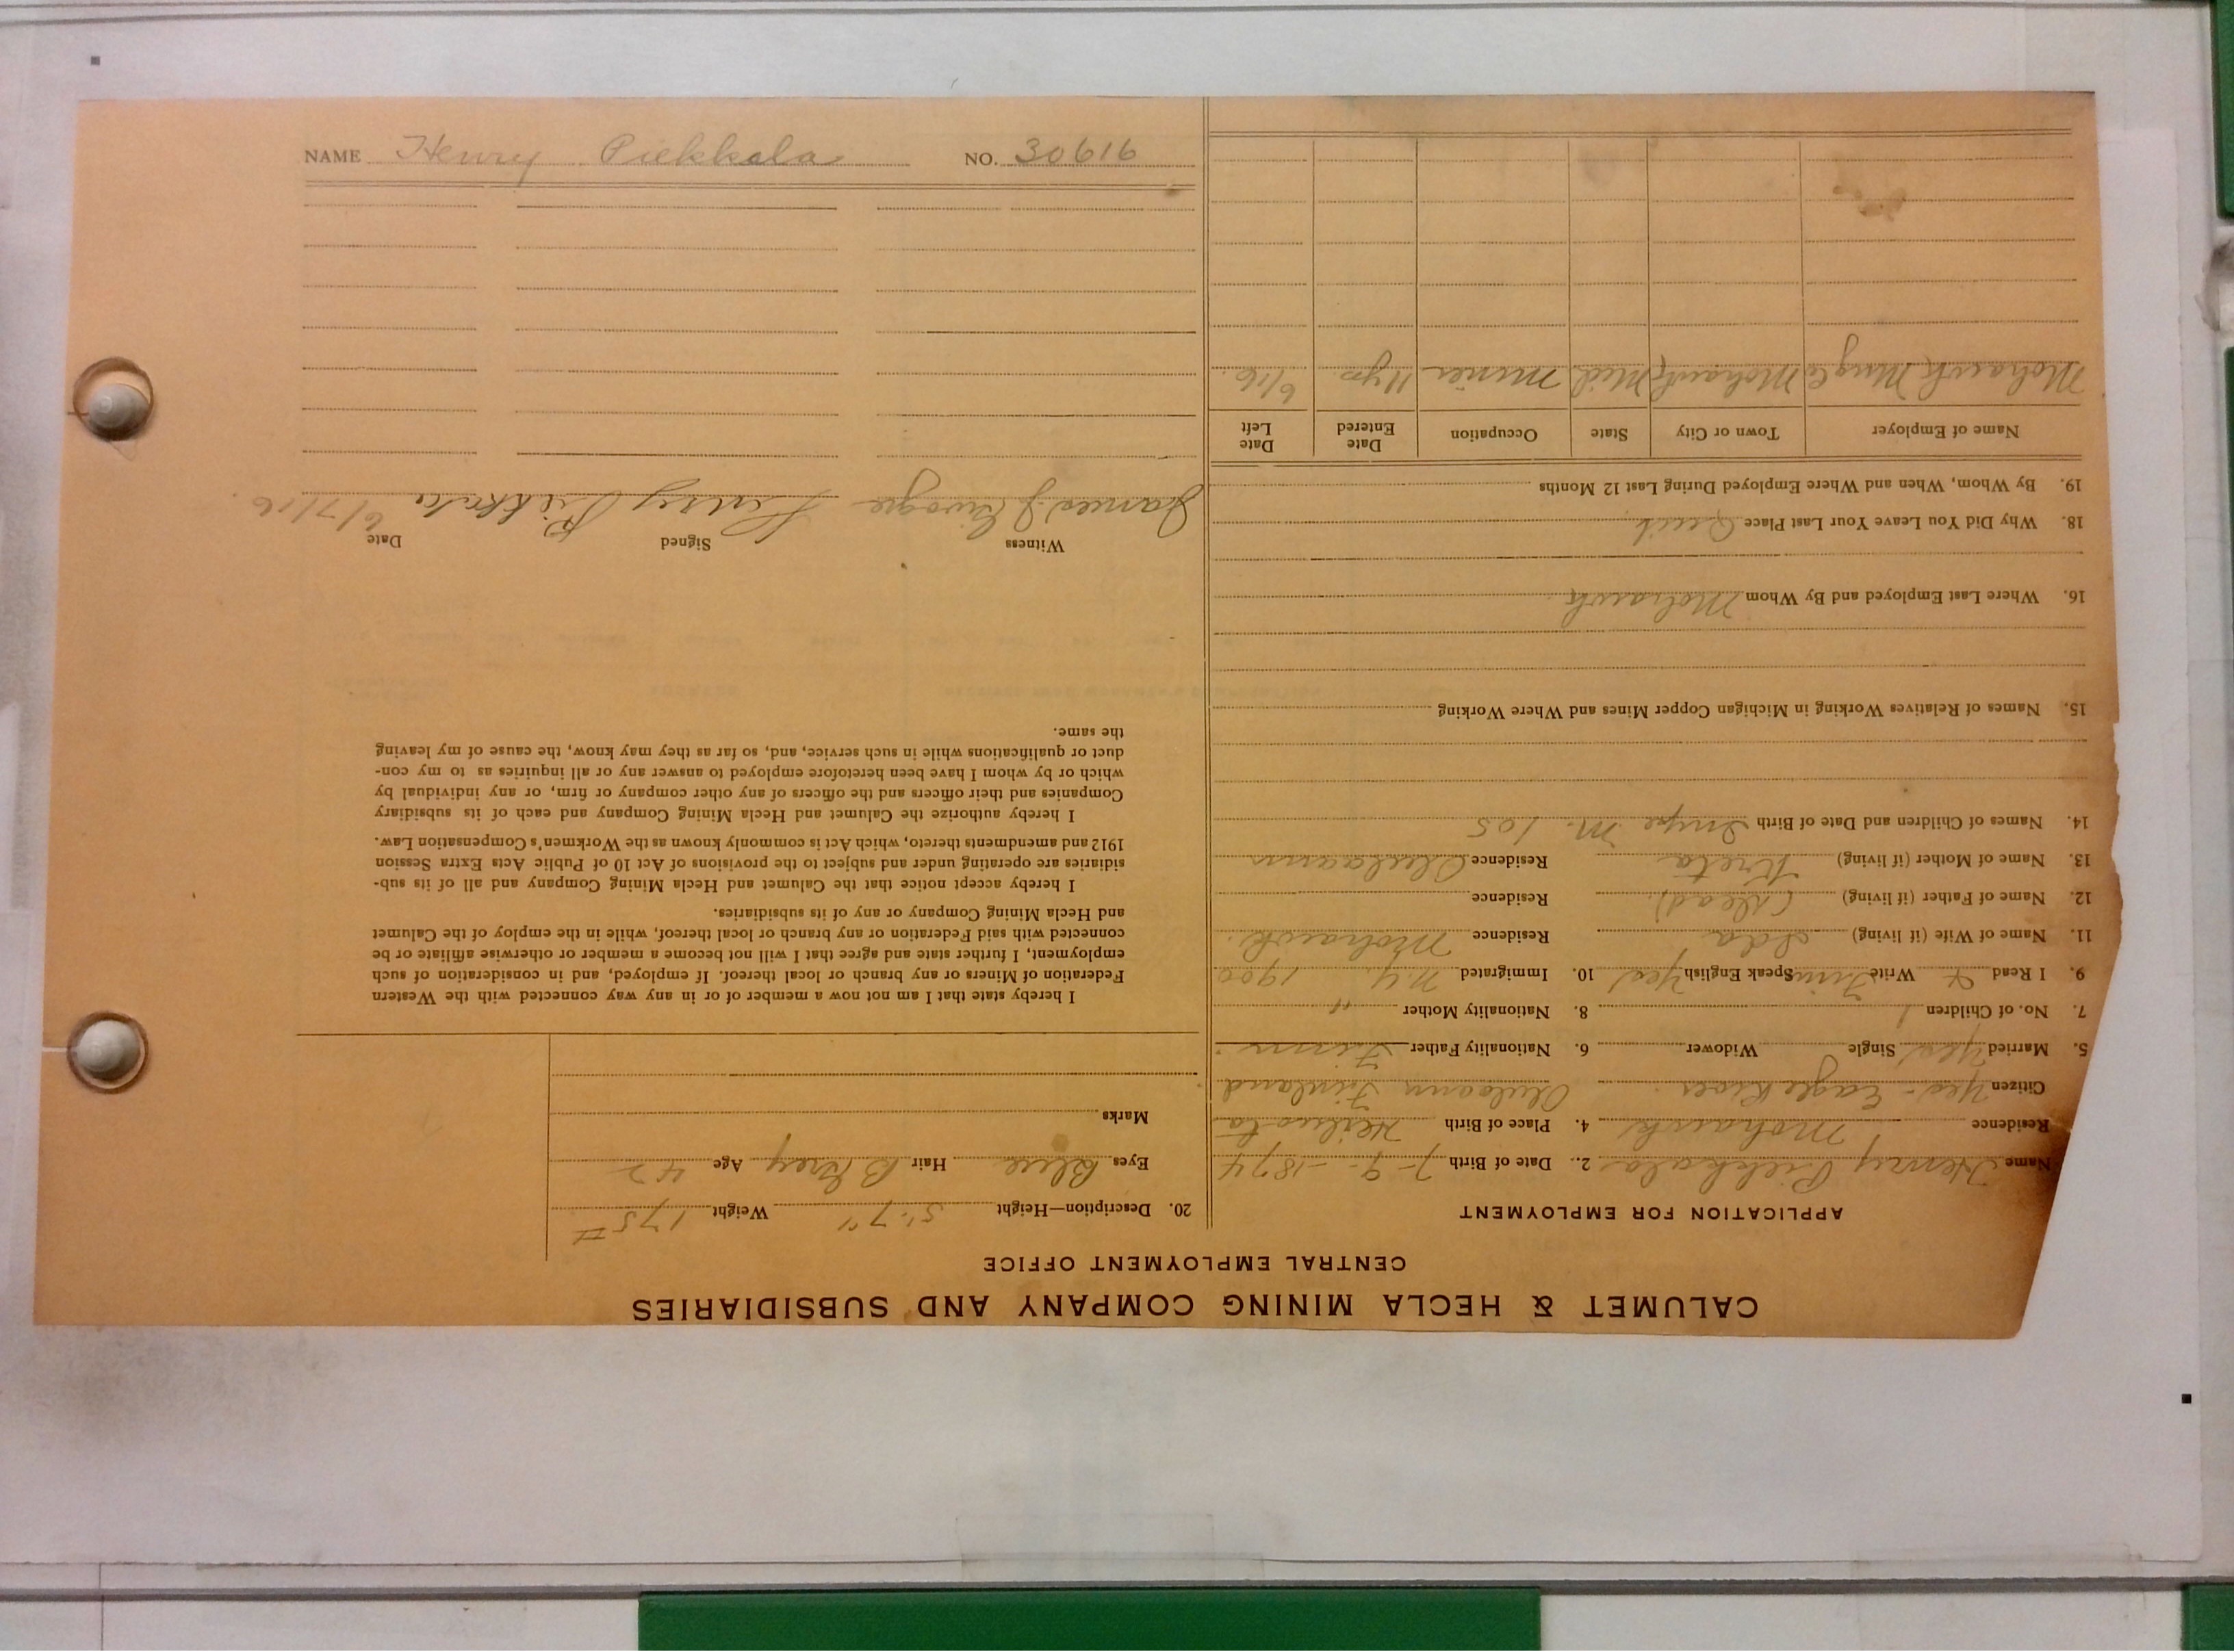 CALUMET & HECLA MINING COMPANY AND SUBSIDIARIES
CENTRAL EMPLOYMENT OFFICE
APPLICATION FOR EMPLOYMENT
Name Henry Piekkala 2. Date of Birth 7-9-1874
Residence Mohawk 4. Place of Birth
Citizen Yes - Eagle River Finland
5. Married Yes Single Widower 6. Nationality Father Finn
7. No. of Children 1 8. Nationality Mother "
9. I Read & Write Finn Speak English Yes 10. Immigrated N.Y. 1900
11. Name of Wife (if living) Ida Residence Mohawk.
12. Name of Father (if living) (dead) Residence
13. Name of Mother (if living) Kreta Residence
14. Names of Children and Date of Birth M. 105
15. Names of Relatives Working in Michigan Copper Mines and Where Working
16. Where Last Employed and By Whom Mohawk
18. Why Did You Leave Your Last Place Quit
19. By Whom, When and Where Employed During Last 12 Months
Name of Employer Town or City State Occupation Date Entered Date Left
Mohawk Mng Co Mohawk Mich miner 11 yrs 6/16.
20. Description—Height 5'.7" Weight 175#
Eyes Blue Hair B Grey Age 42
Marks
I hereby state that I am not now a member of or in any way connected with the Western
Federation of Miners or any branch or local thereof. If employed, and in consideration of such
employment, I further state and agree that I will not become a member or otherwise affiliate or be
connected with said Federation or any branch or local thereof, while in the employ of the Calumet
and Hecla Mining Company or any of its subsidiaries.
I hereby accept notice that the Calumet and Hecla Mining Company and all of its sub-
sidiaries are operating under and subject to the provisions of Act 10 of Public Acts Extra Session
1912 and amendments thereto, which Act is commonly known as the Workmen's Compensation Law.
I hereby authorize the Calumet and Hecla Mining Company and each of its subsidiary
Companies and their officers and the officers of any other company or firm, or any individual by
which or by whom I have been heretofore employed to answer any or all inquiries as to my con-
duct or qualifications while in such service, and, so far as they may know, the cause of my leaving
the same.
Witness Signed Date
James J Henry Piekkala 6/7/16.
NAME Henry Piekkala NO. 30616